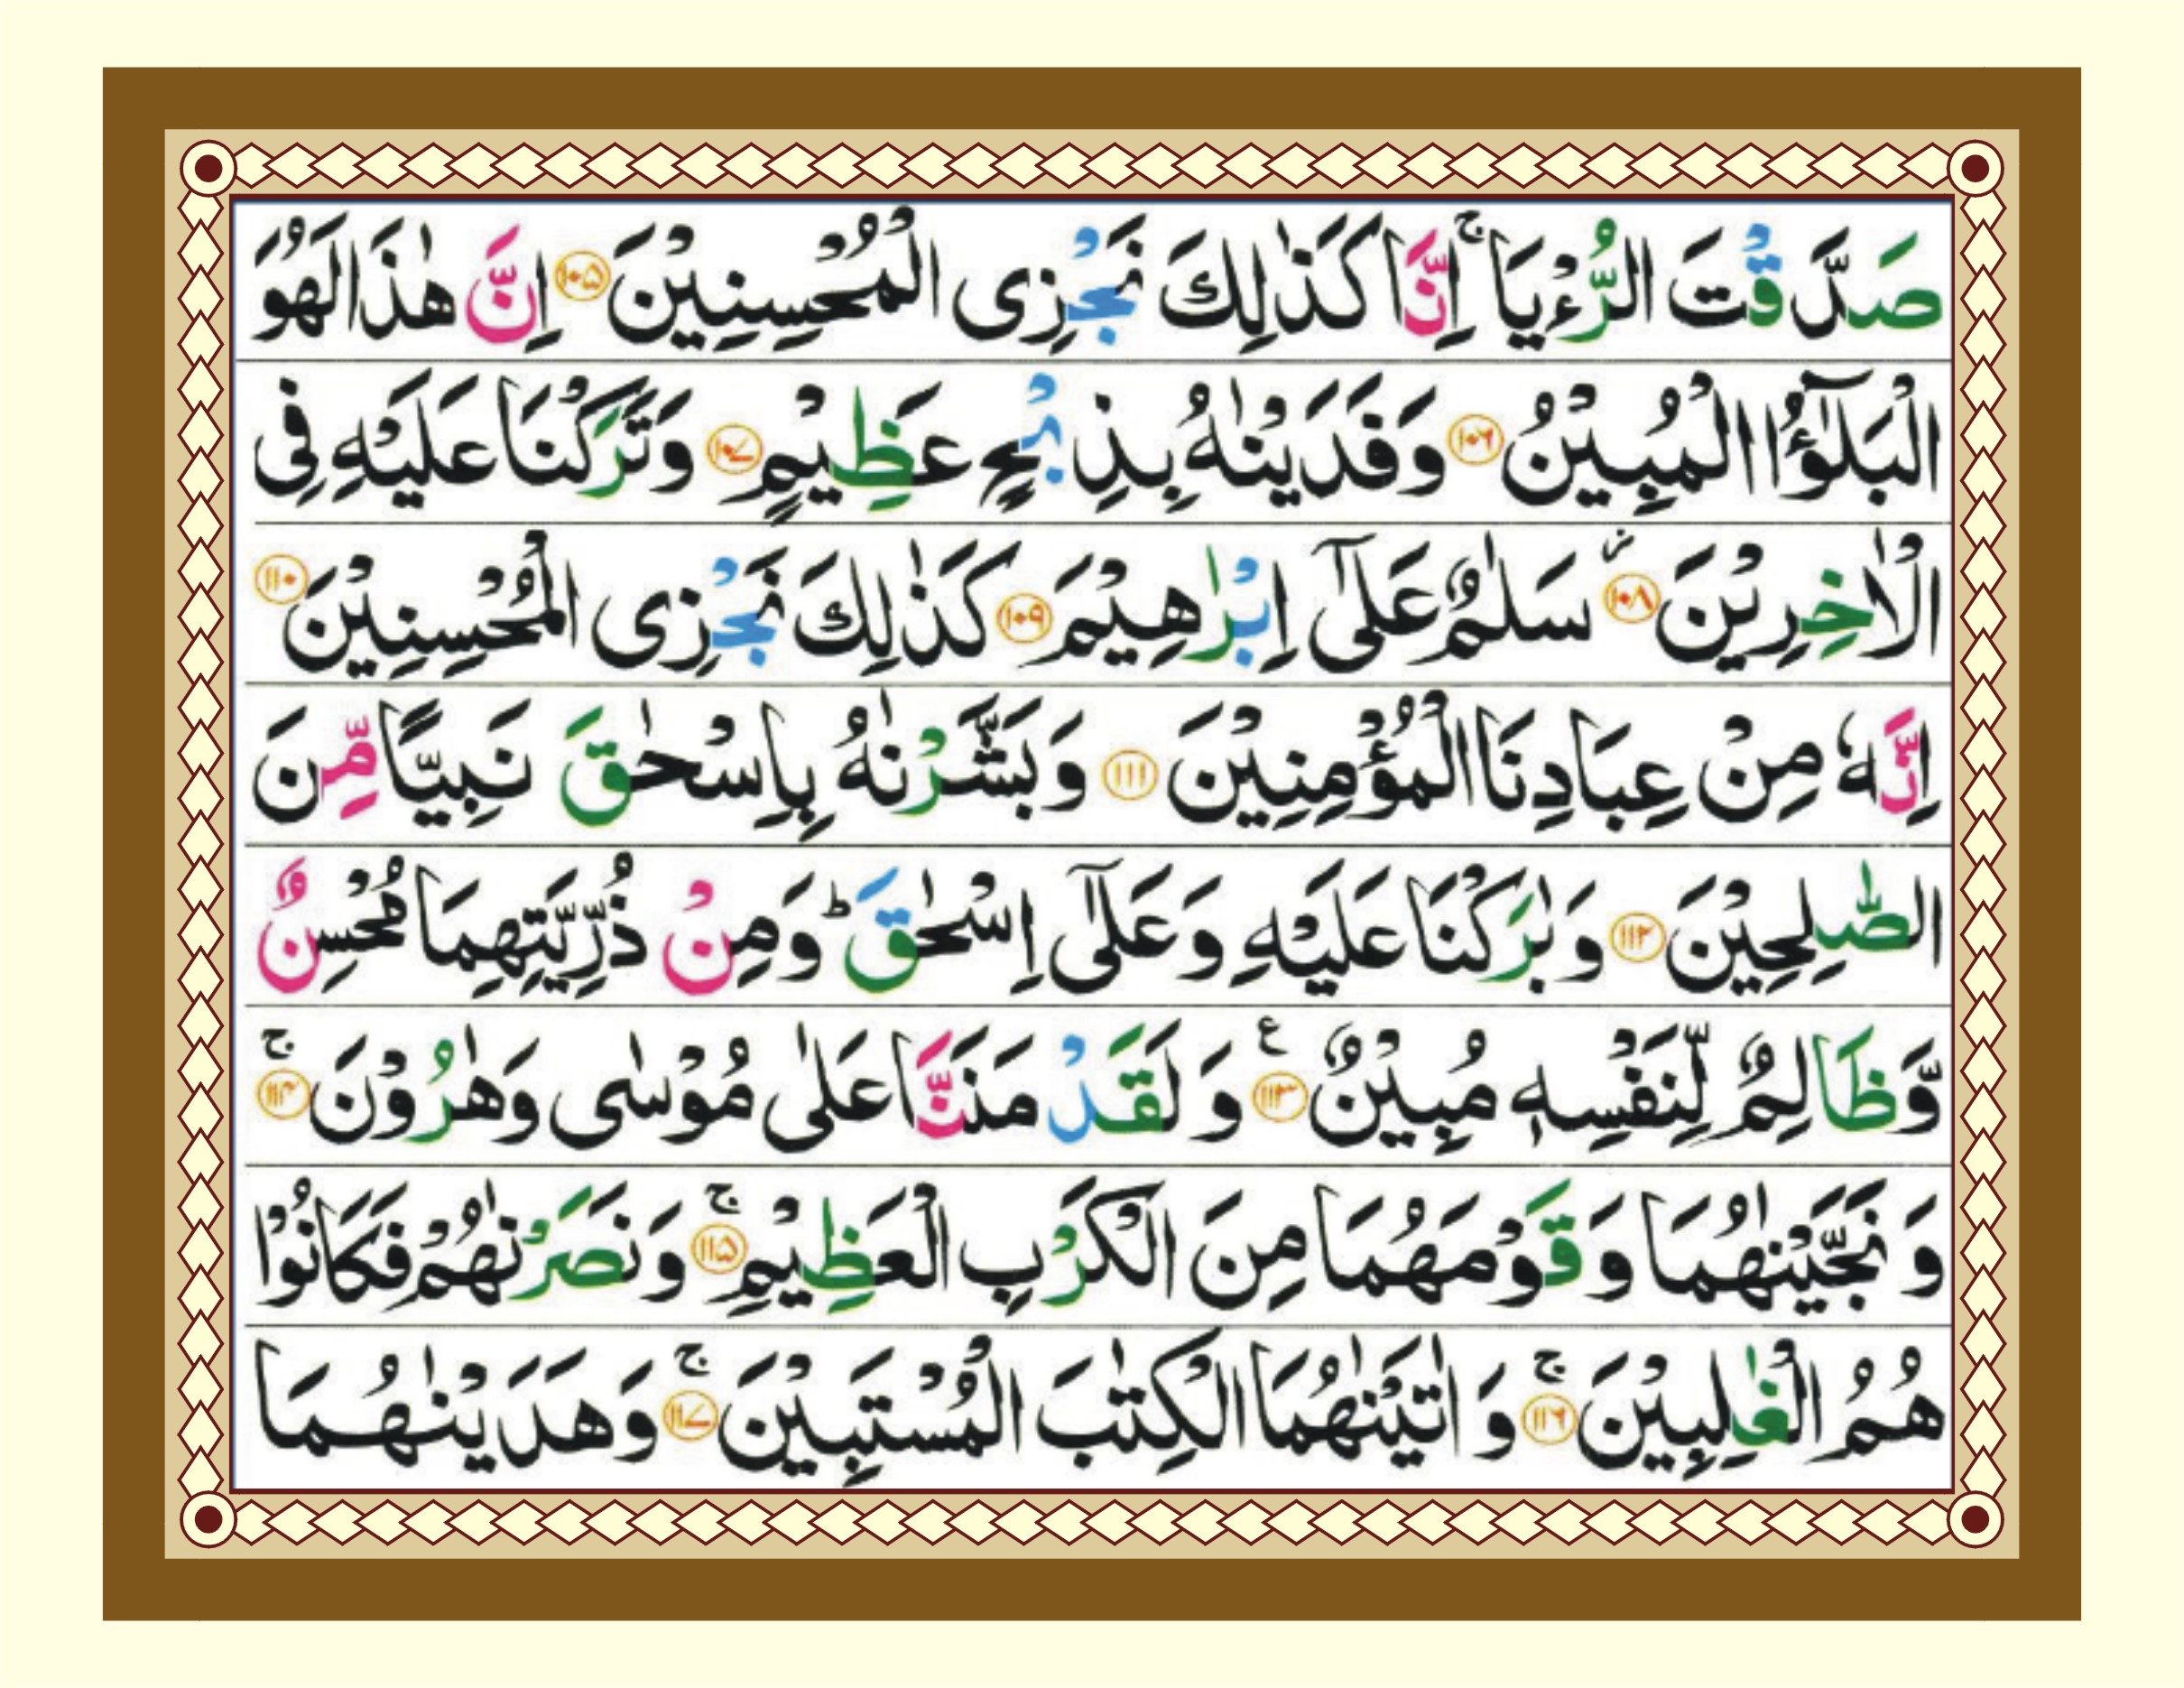 صَدَّقْتَ الرُّءْيَا ۚ اِنَّا كَذٰلِكَ نَجْزِى الْمُحْسِنِيْنَ ۝۱۰۵ اِنَّ هٰذَا لَهُوَ
الْبَلٰٓؤُا الْمُبِيْنُ ۝۱۰۶ وَفَدَيْنٰهُ بِذِبْحٍ عَظِيْمٍ ۝۱۰۷ وَتَرَكْنَا عَلَيْهِ فِى
الْاٰخِرِيْنَ ۝۱۰۸ۖ سَلٰمٌ عَلٰٓى اِبْرٰهِيْمَ ۝۱۰۹ كَذٰلِكَ نَجْزِى الْمُحْسِنِيْنَ ۝۱۱۰
اِنَّهٗ مِنْ عِبَادِنَا الْمُؤْمِنِيْنَ ۝۱۱۱ وَبَشَّرْنٰهُ بِاِسْحٰقَ نَبِيًّا مِّنَ
الصّٰلِحِيْنَ ۝۱۱۲ وَبٰرَكْنَا عَلَيْهِ وَعَلٰٓى اِسْحٰقَ ؕ وَمِنْ ذُرِّيَّتِهِمَا مُحْسِنٌ
وَّظَالِمٌ لِّنَفْسِهٖ مُبِيْنٌ ۝۱۱۳ ع وَلَقَدْ مَنَنَّا عَلٰى مُوْسٰى وَهٰرُوْنَ ۝۱۱۴ۚ
وَنَجَّيْنٰهُمَا وَقَوْمَهُمَا مِنَ الْكَرْبِ الْعَظِيْمِ ۝۱۱۵ۚ وَنَصَرْنٰهُمْ فَكَانُوْا
هُمُ الْغٰلِبِيْنَ ۝۱۱۶ۚ وَاٰتَيْنٰهُمَا الْكِتٰبَ الْمُسْتَبِيْنَ ۝۱۱۷ۚ وَهَدَيْنٰهُمَا